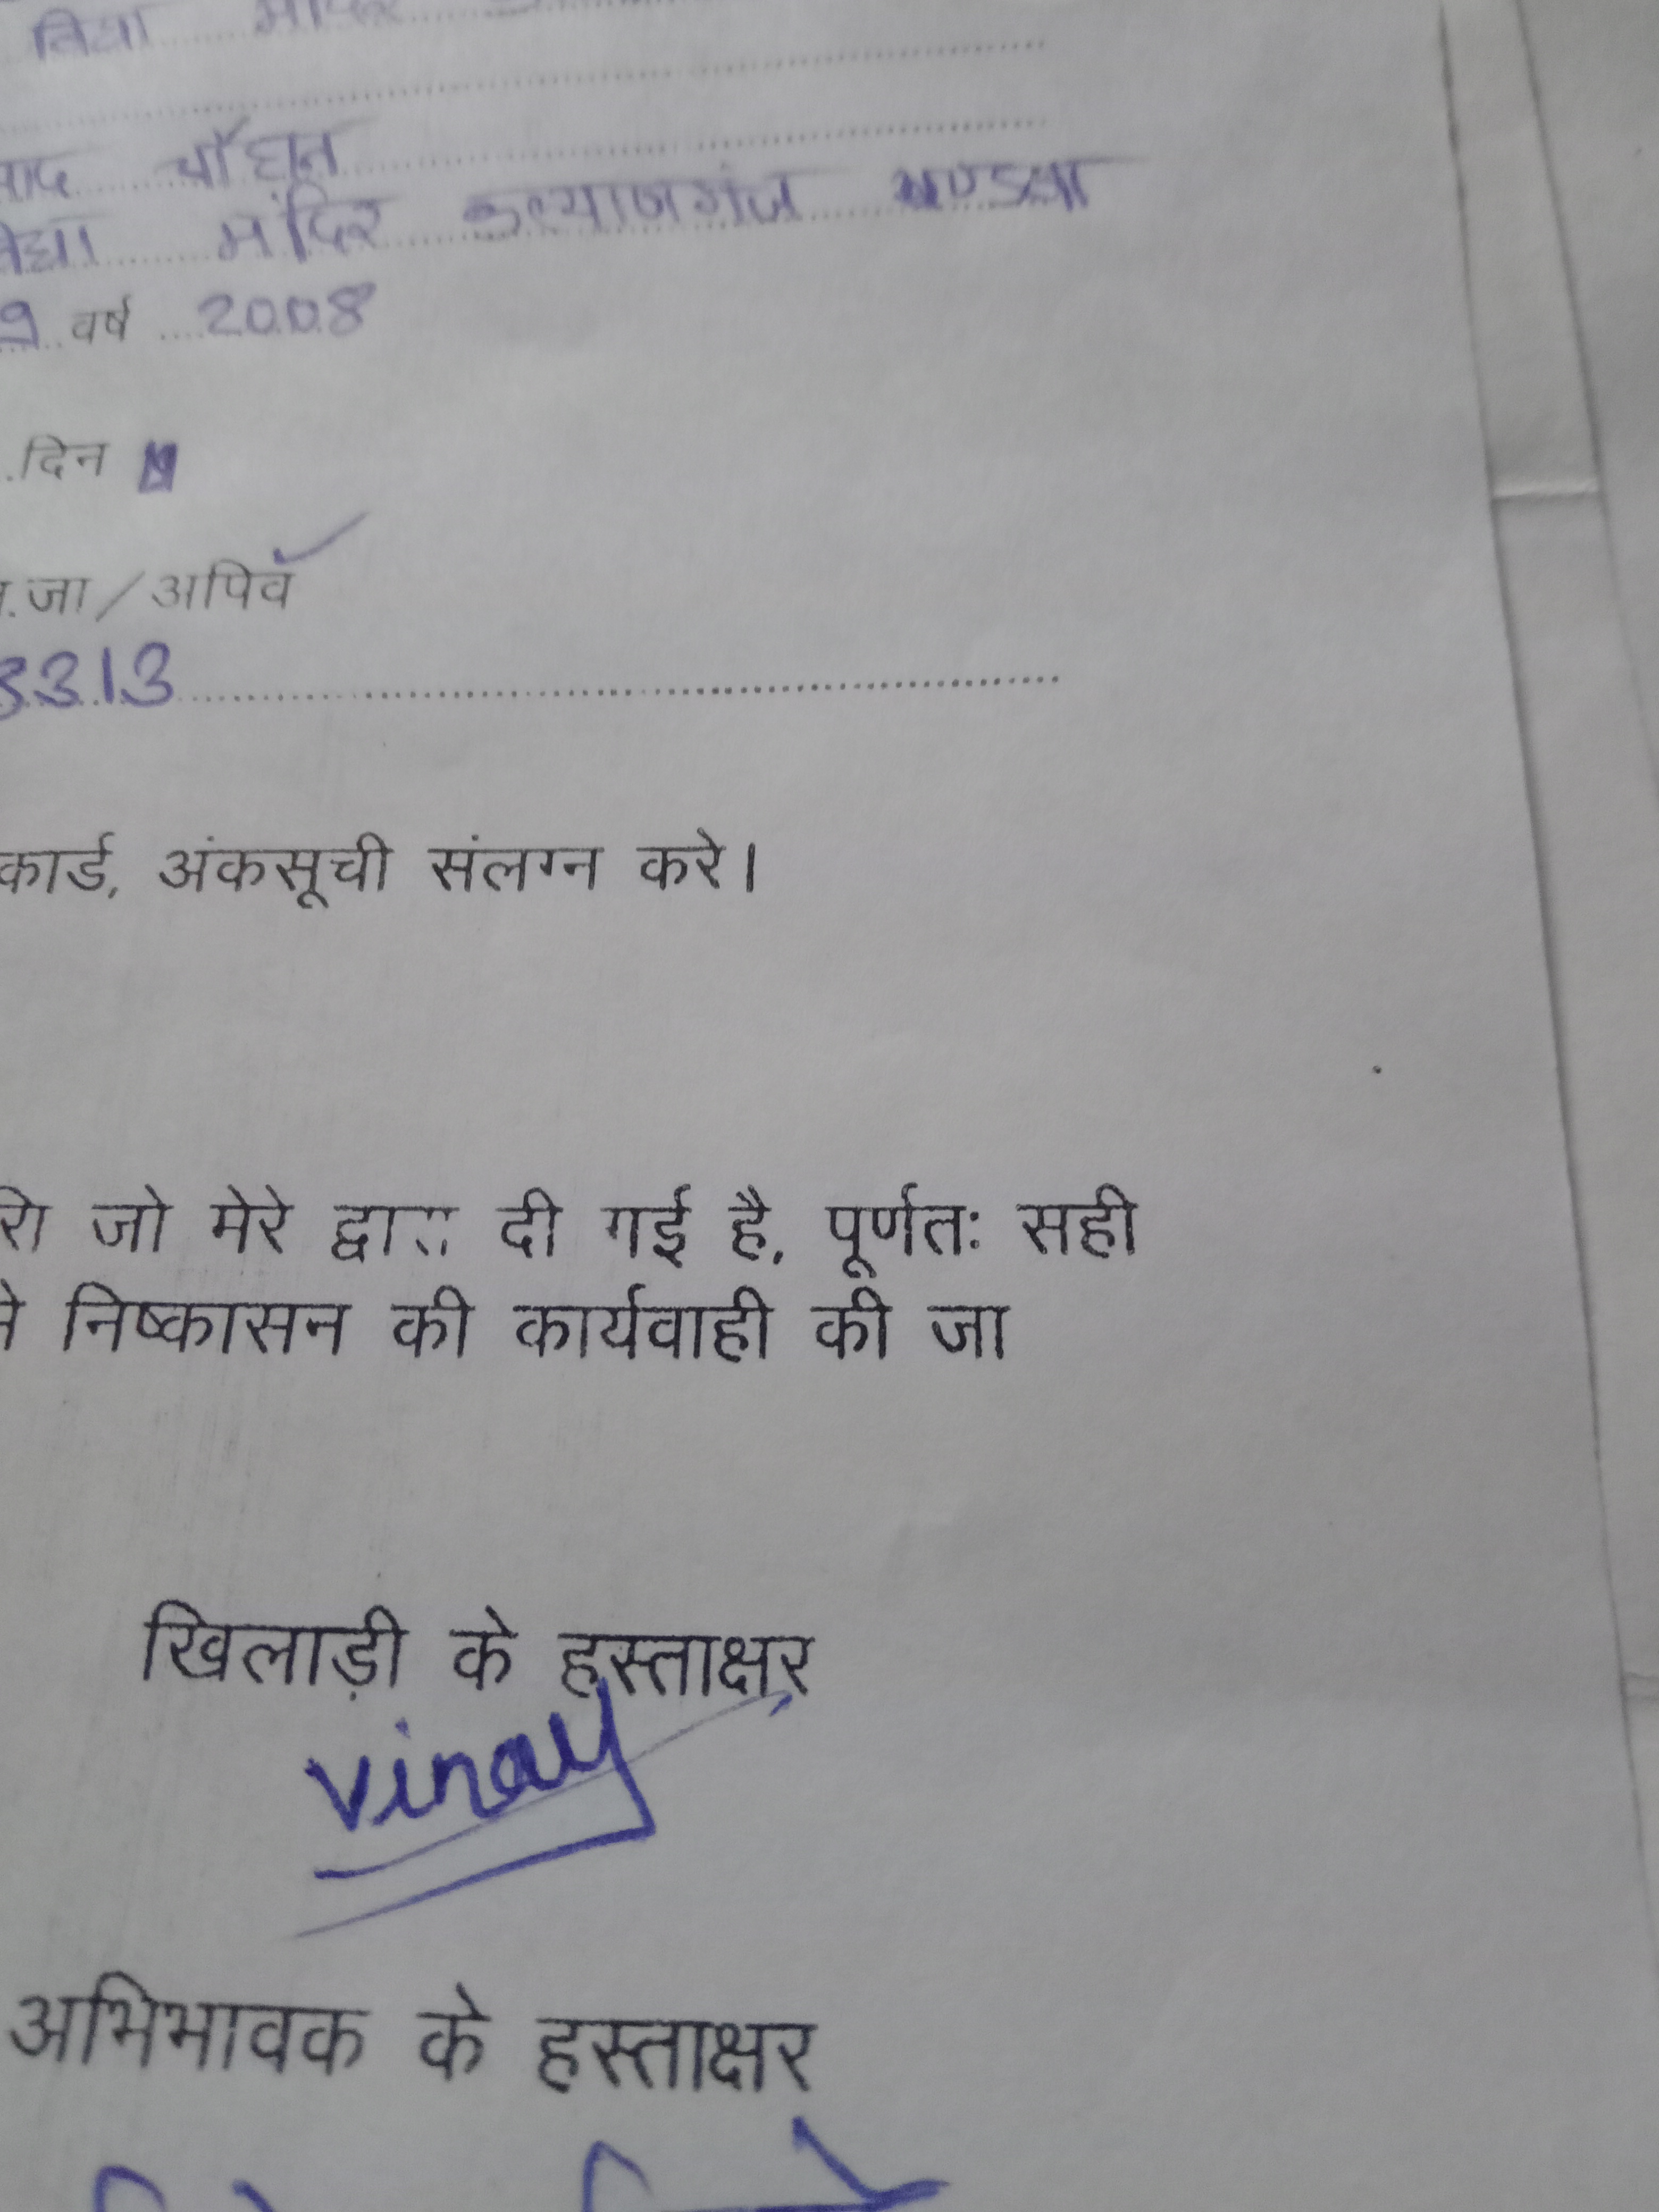 विद्या
चौहान
मंदिर कल्याणगंज खण्डवा
9 वर्ष 2008
दिन
जा/अपिव
3313
कार्ड, अंकसूची संलग्न करे।
जो मेरे द्वारा दी गई है, पूर्णतः सही
निष्कासन की कार्यवाही की जा
खिलाड़ी के हस्ताक्षर
vinay
अभिभावक के हस्ताक्षर